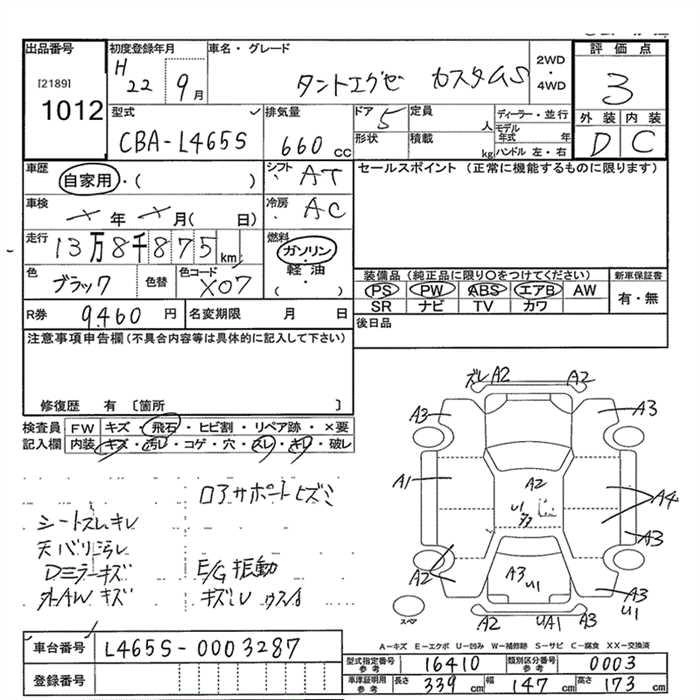 出品番号
[2189]
1012
初度登録年月
H 22 9月
車名・グレード
タントエグゼ カスタムS
2WD
・
4WD
評価点
3
外装 内装
D C
型式
CBA-L465S
排気量
660 cc
ドア 5
形状
定員 人
積載 kg
ディーラー・並行
モデル年式 年
ハンドル 左・右
車歴
自家用・( )
シフト AT
セールスポイント (正常に機能するものに限ります)
車検
× 年 × 月( 日)
冷房 AC
走行
13万8千875 km
燃料
ガソリン
・
軽油
( ・ )
色
ブラック
色替
色コード
X07
装備品(純正品に限り○をつけてください)
新車保証書
PS PW ABS エアB AW
有・無
SR ナビ TV カワ
R券 9,460 円
名変期限 月 日
後日品
注意事項申告欄(不具合内容等は具体的に記入して下さい)
修復歴 有 [箇所 ]
検査員記入欄
FW キズ・飛石・ヒビ割・リペア跡・×要
内装 キズ・汚レ・コゲ・穴・スレ・キレ・破レ
ロアサポートヒズミ
シートスレキレ
天バリ汚レ
Dミラーキズ
外AWキズ
E/G振動
ズレ A2 A2
A3 A3
A1 A2 A4
U1
A3
A2 A3 U1 A3 U1
A2 UA1 A3
スペア
A-キズ E-エクボ U-凹み W-補修跡 S-サビ C-腐食 XX-交換済
車台番号
L465S-0003287
登録番号
型式指定番号 参考 16410
類別区分番号 参考 0003
車庫証明用 参考 長さ 339 cm 幅 147 cm 高さ 173 cm